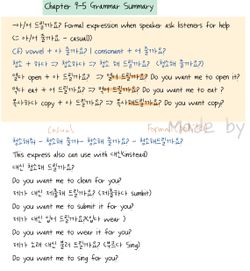 Chapter 9-5 Grammar Summary
→ 아/어 드릴까요? Formal expression when speaker ask listeners for help
(= 아/어 줄까요 - casual)
(cf) vowel + 아 줄까요? | consonant + 어 줄까요?
청소 + 하다 → 청소하다 → 청소해 드릴까요? (ask better)
열다 open + 아 드릴까요? → 열어 드릴까요? Do you want me to open it?
먹다 eat + 어 드릴까요? → 먹어 드릴까요? Do you want me to eat?
복사하다 copy + 아 드릴까요? → 복사해드릴까요? Do you want copy?
Made by
Casual Formal
청소해줘 - 청소해 줄까 - 청소해 줄까요? - 청소해드릴까요?
This express also can use with 대신(instead)
대신 청소해 드릴까요?
Do you want me to clean for you?
제가 대신 제출해 드릴까요? (제출하다 sumbit)
Do you want me to submit it for you?
제가 대신 입어 드릴까요?(입다 wear)
Do you want me to wear it for you?
제가 노래 대신 불러 드릴까요? (부르다 Sing)
Do you want me to sing for you?